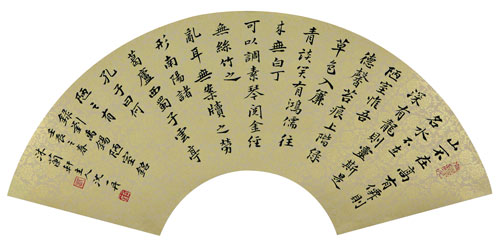 山不在高有僊則
名水不在
深有龍則靈斯是
陋室惟吾
德馨苔痕上階緑
草色入簾
青談笑有鴻儒往
来無白丁
可以調素琴閲金經
無絲竹之
亂耳無案牘之勞
形南陽諸
葛廬西蜀子雲亭
孔子曰何
陋之有
録劉禹錫陋室銘
沐蘭軒主人沈